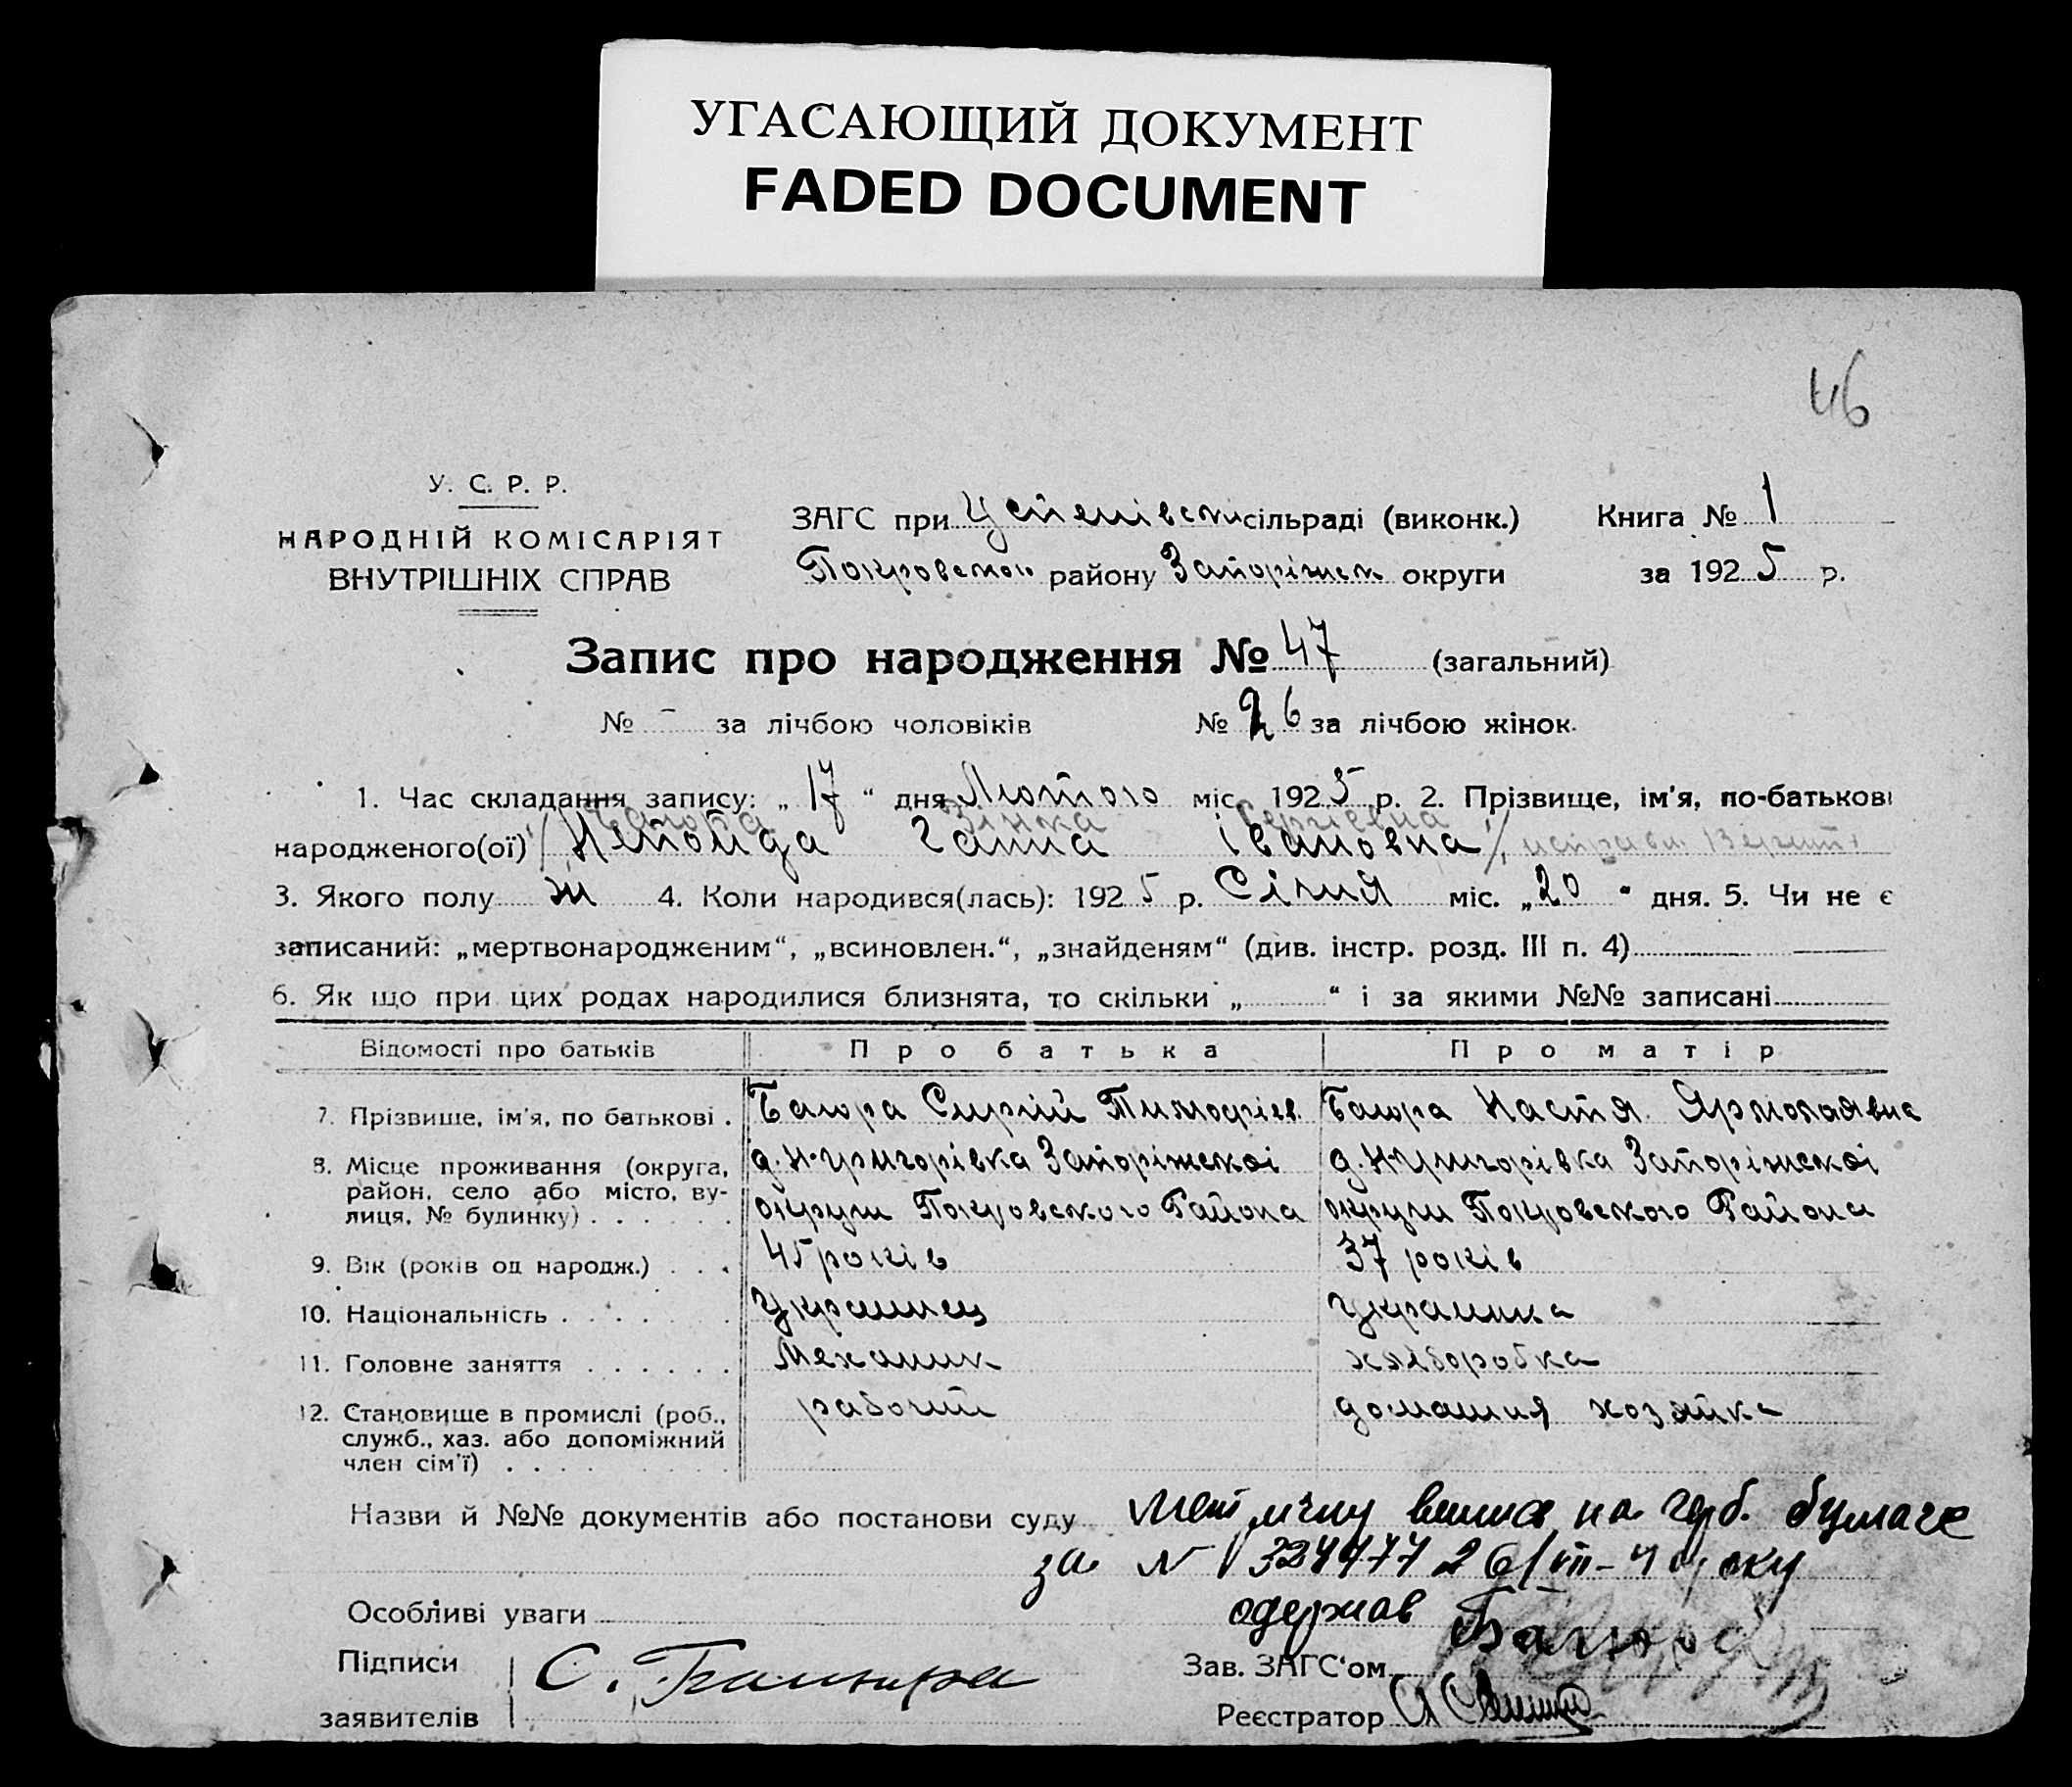 УГАСАЮЩИЙ ДОКУМЕНТ
FADED DOCUMENT
46
У. С. Р. Р.
НАРОДНІЙ КОМІСАРІЯТ
ВНУТРІШНІХ СПРАВ
ЗАГС при Успенівски сільраді (виконк.) Книга № 1
Покровскою району Запоріжск округи за 1925 р.
Запис про народження № 47 (загальний)
№ - за лічбою чоловіків № 26 за лічбою жінок.
1. Час складання запису: „ 17 “ дня Лютого міс. 1925 р. 2. Прізвище, ім'я, по-батькові
Зінка Сергіевна
народженого(ої) Непойда Ганна Івановна
3. Якого полу ж 4. Коли народився(лась): 1925 р. Січня міс. „20 “ дня. 5. Чи не є
записаний: „мертвонародженим“, „всиновлен.“, „знайденям“ (див. інстр. розд. III п. 4)
6. Як що при цих родах народилися близнята, то скільки „ “ і за якими №№ записані
Відомості про батьків Про батька Про матір
7. Прізвище, ім'я, по батькові . Багюра Сиргій Тимофіев. Багюра Настя Ярмолаявна
8. Місце проживання (округа, д. Н-григорівка Запоріжскої д. Н-григорівка Запоріжскої
район, село або місто, ву-
лиця, № будинку) . . . . . . округи Покровского Района округи Покровского Района
9. Вік (років од народж.) . . . 45 років 37 років
10. Національність . . . . . . Украинец Украинка
11. Головне заняття . . . . . . Механик хліборобка
12. Становище в промислі (роб., рабочий домашня хозяйка
служб., хаз. або допоміжний
член сім'ї) . . . .
Назви й №№ документів або постанови суду Метричну випис на герб. бумаге
за N 324477 26/VII-
Особливі уваги одержав Багюра
Підписи С. Багюра Зав. ЗАГС'ом
заявителів Реєстратор